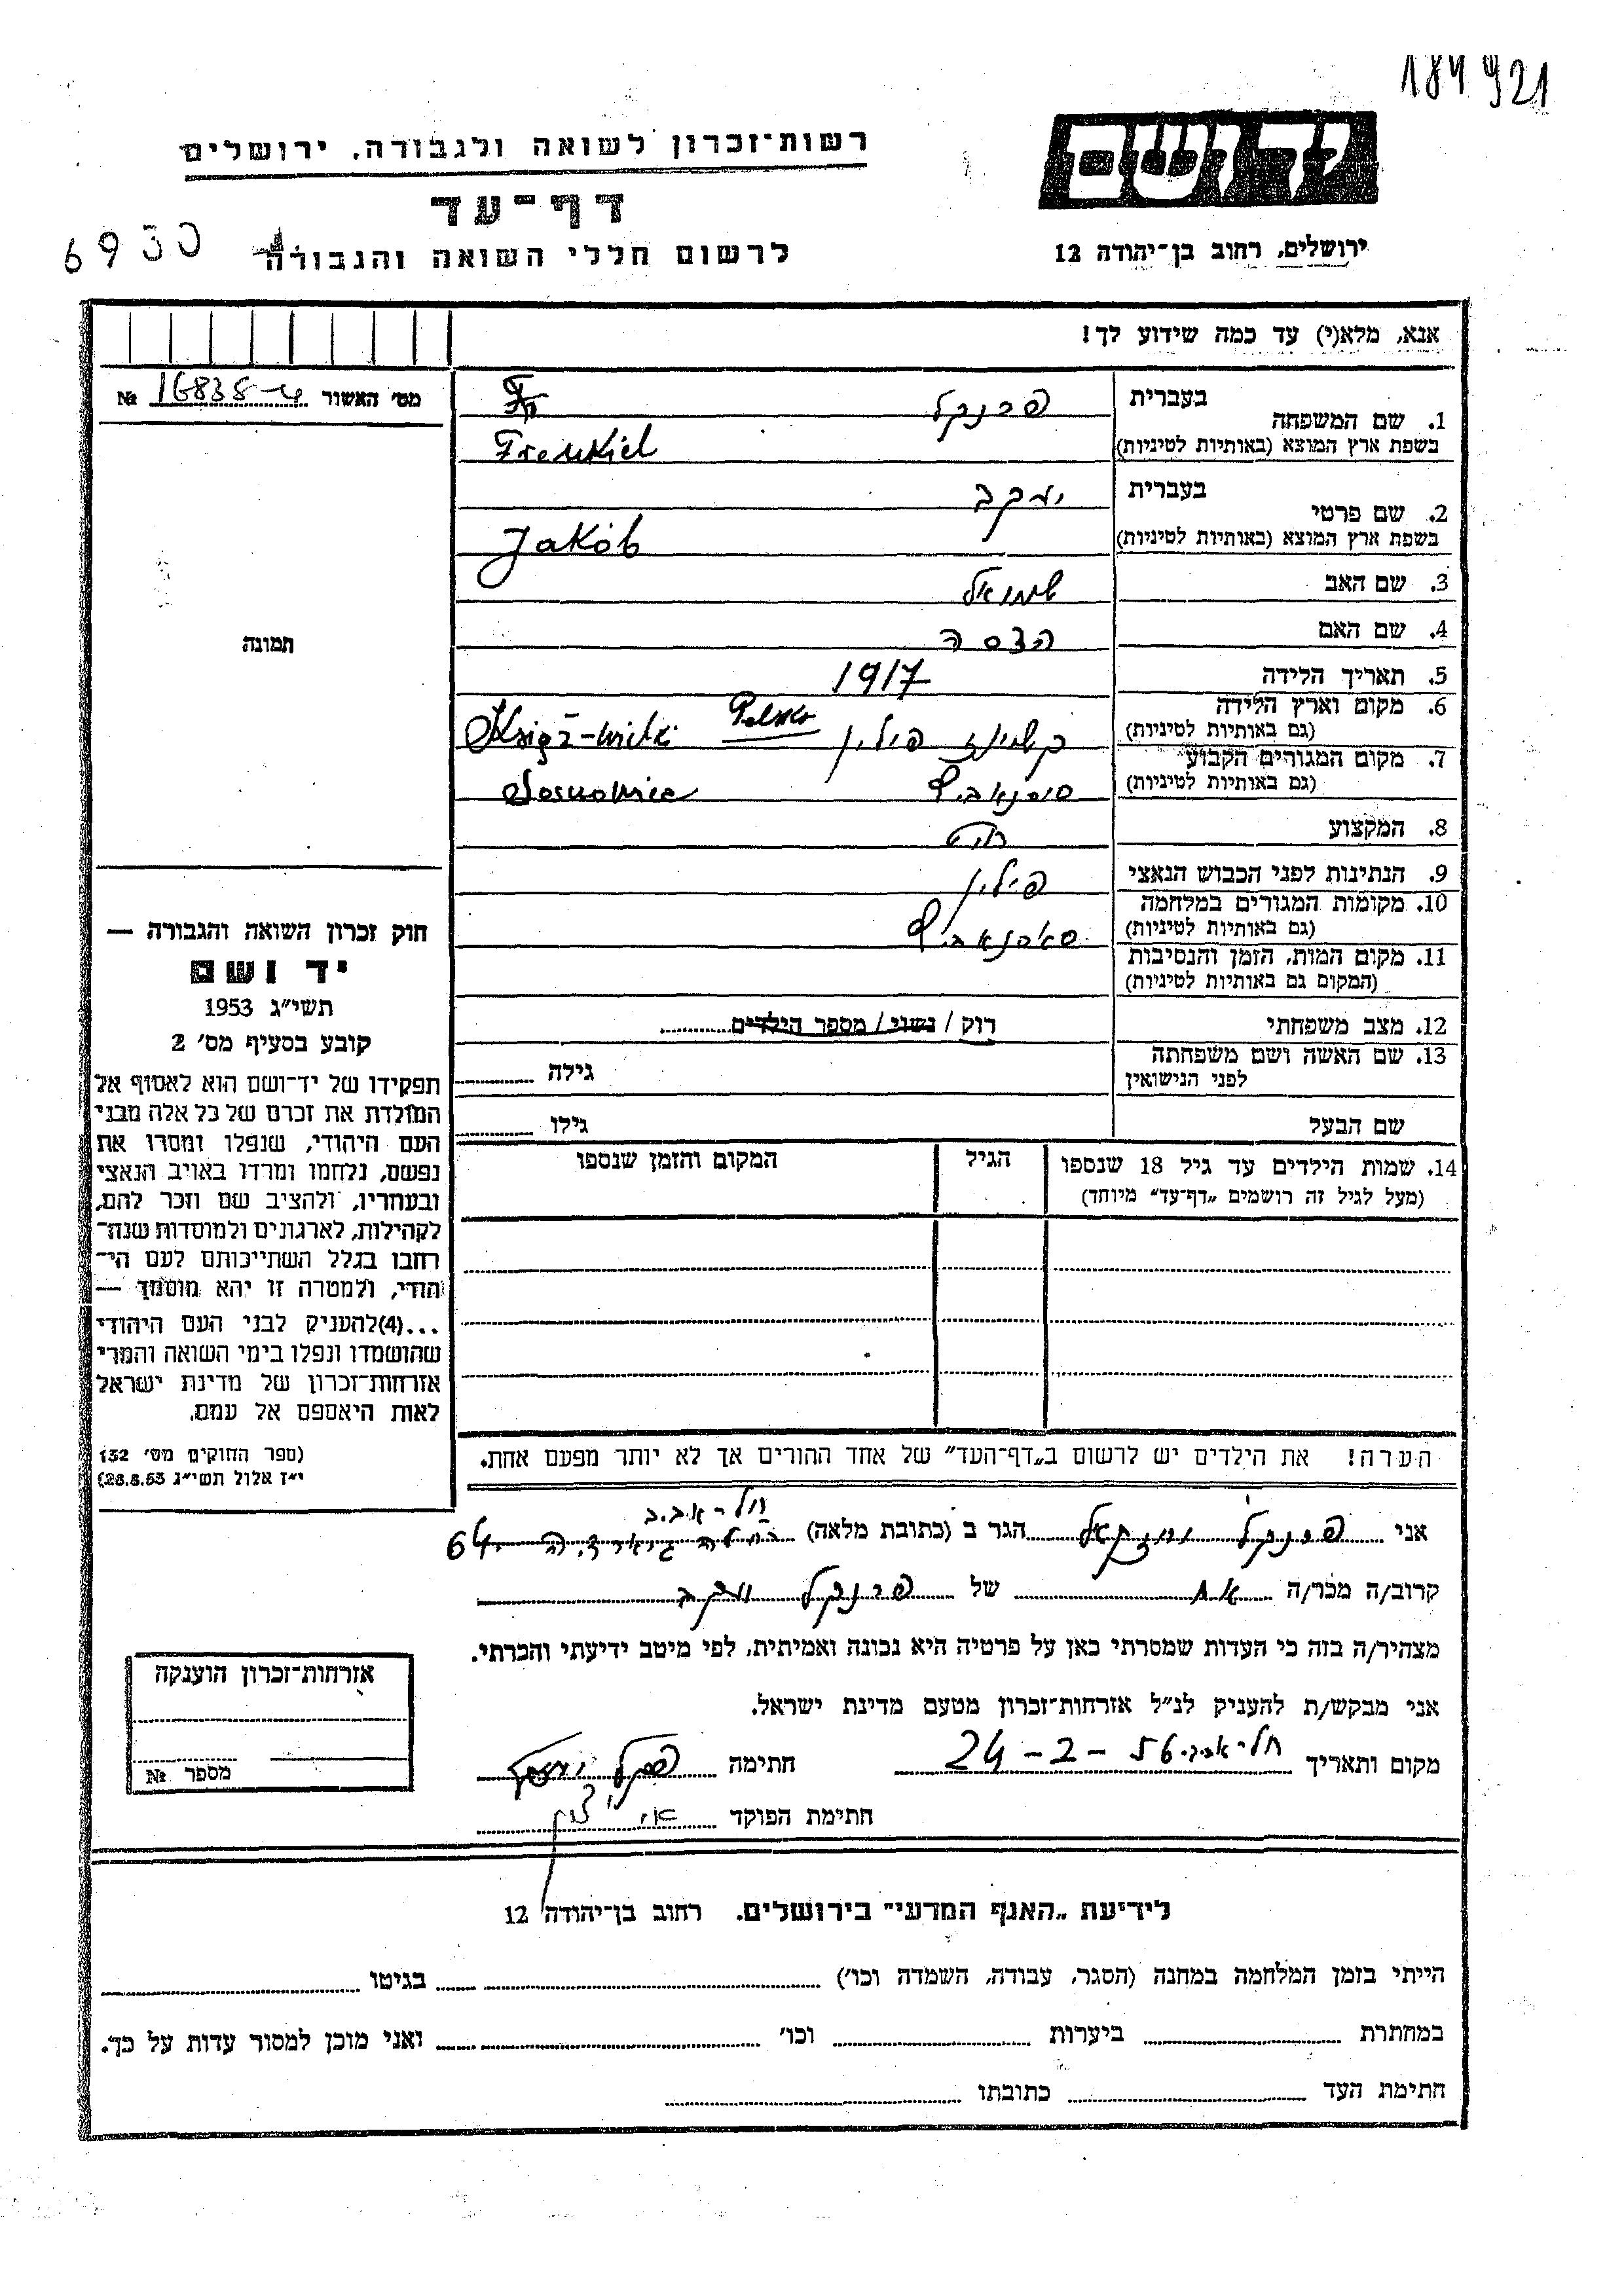 184921
רשות־זכרון לשואה ולגבורה, ירושלים
יד ושם
דף־עד
6930
לרשום חללי השואה והגבורה
ירושלים, רחוב בן־יהודה 12
אנא, מלא(י) עד כמה שידוע לך!
מס׳ האשור № 16838
1. שם המשפחה
בעברית פרנקל
בשפת ארץ המוצא (באותיות לטיניות) Frenkiel
2. שם פרטי
בעברית יעקב
בשפת ארץ המוצא (באותיות לטיניות) Jakób
3. שם האב שמואל
4. שם האם הדסה
5. תאריך הלידה 1917
6. מקום וארץ הלידה
(גם באותיות לטיניות) פולין Polska Książ-wielki
7. מקום המגורים הקבוע
(גם באותיות לטיניות) סוסנוביץ Sosnowiec
8. המקצוע חיט
9. הנתינות לפני הכבוש הנאצי פולין
10. מקומות המגורים במלחמה
(גם באותיות לטיניות) סוסנוביץ
11. מקום המות, הזמן והנסיבות
(המקום גם באותיות לטיניות)
12. מצב משפחתי רוק / נשוי / מספר הילדים
13. שם האשה ושם משפחתה
לפני הנישואין גילה
שם הבעל גילו
14. שמות הילדים עד גיל 18 שנספו
(מעל לגיל זה רושמים „דף־עד״ מיוחד)
הגיל
המקום והזמן שנספו
הערה! את הילדים יש לרשום ב„דף־העד״ של אחד ההורים אך לא יותר מפעם אחת.
תמונה
חוק זכרון השואה והגבורה —
יד ושם
תשי״ג 1953
קובע בסעיף מס׳ 2
תפקידו של יד־ושם הוא לאסוף אל
המולדת את זכרם של כל אלה מבני
העם היהודי, שנפלו ומסרו את
נפשם, נלחמו ומרדו באויב הנאצי
ובעוזריו, ולהציב שם וזכר להם,
לקהילות, לארגונים ולמוסדות שנח־
רחבו בגלל השתייכותם לעם הי־
הודי, ולמטרה זו יהא מוסמך —
...(4)להעניק לבני העם היהודי
שהושמדו ונפלו בימי השואה והמרי
אזרחות־זכרון של מדינת ישראל
לאות היאספם אל עמם.
(ספר החוקים מס׳ 132
י״ז אלול תשי״ג 28.8.53)
תל-אביב
אני פרנקל יחזקאל הגר ב (כתובת מלאה) 64
קרוב/ה מכר/ה אח של פרנקל יעקב
מצהיר/ה בזה כי העדות שמסרתי כאן על פרטיה היא נכונה ואמיתית, לפי מיטב ידיעתי והכרתי.
אני מבקש/ת להעניק לנ״ל אזרחות־זכרון מטעם מדינת ישראל.
מקום ותאריך תל-אביב 24-2-56 חתימה פרנקל
חתימת הפוקד
אזרחות־זכרון הוענקה
מספר №
לידיעת „האגף המדעי״ בירושלים. רחוב בן־יהודה 12
הייתי בזמן המלחמה במחנה (הסגר, עבודה, השמדה וכו׳) בגיטו
במחתרת ביערות וכו׳ ואני מוכן למסור עדות על כך.
חתימת העד כתובתו